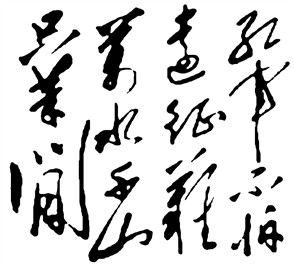 红军不怕
远征难
万水千山
只等闲